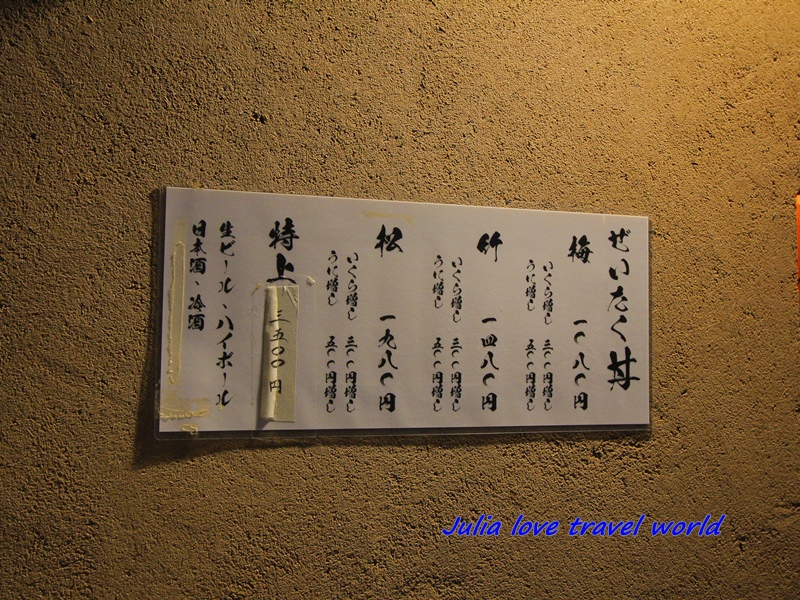 ぜいたく丼
梅 一〇八〇円
いくら増し 三〇〇円増し
うに増し 五〇〇円増し
竹 一四八〇円
いくら増し 三〇〇円増し
うに増し 五〇〇円増し
松 一九八〇円
いくら増し 三〇〇円増し
うに増し 五〇〇円増し
特上 三五〇〇円
生ビール、ハイボール
日本酒、冷酒
Julia love travel world